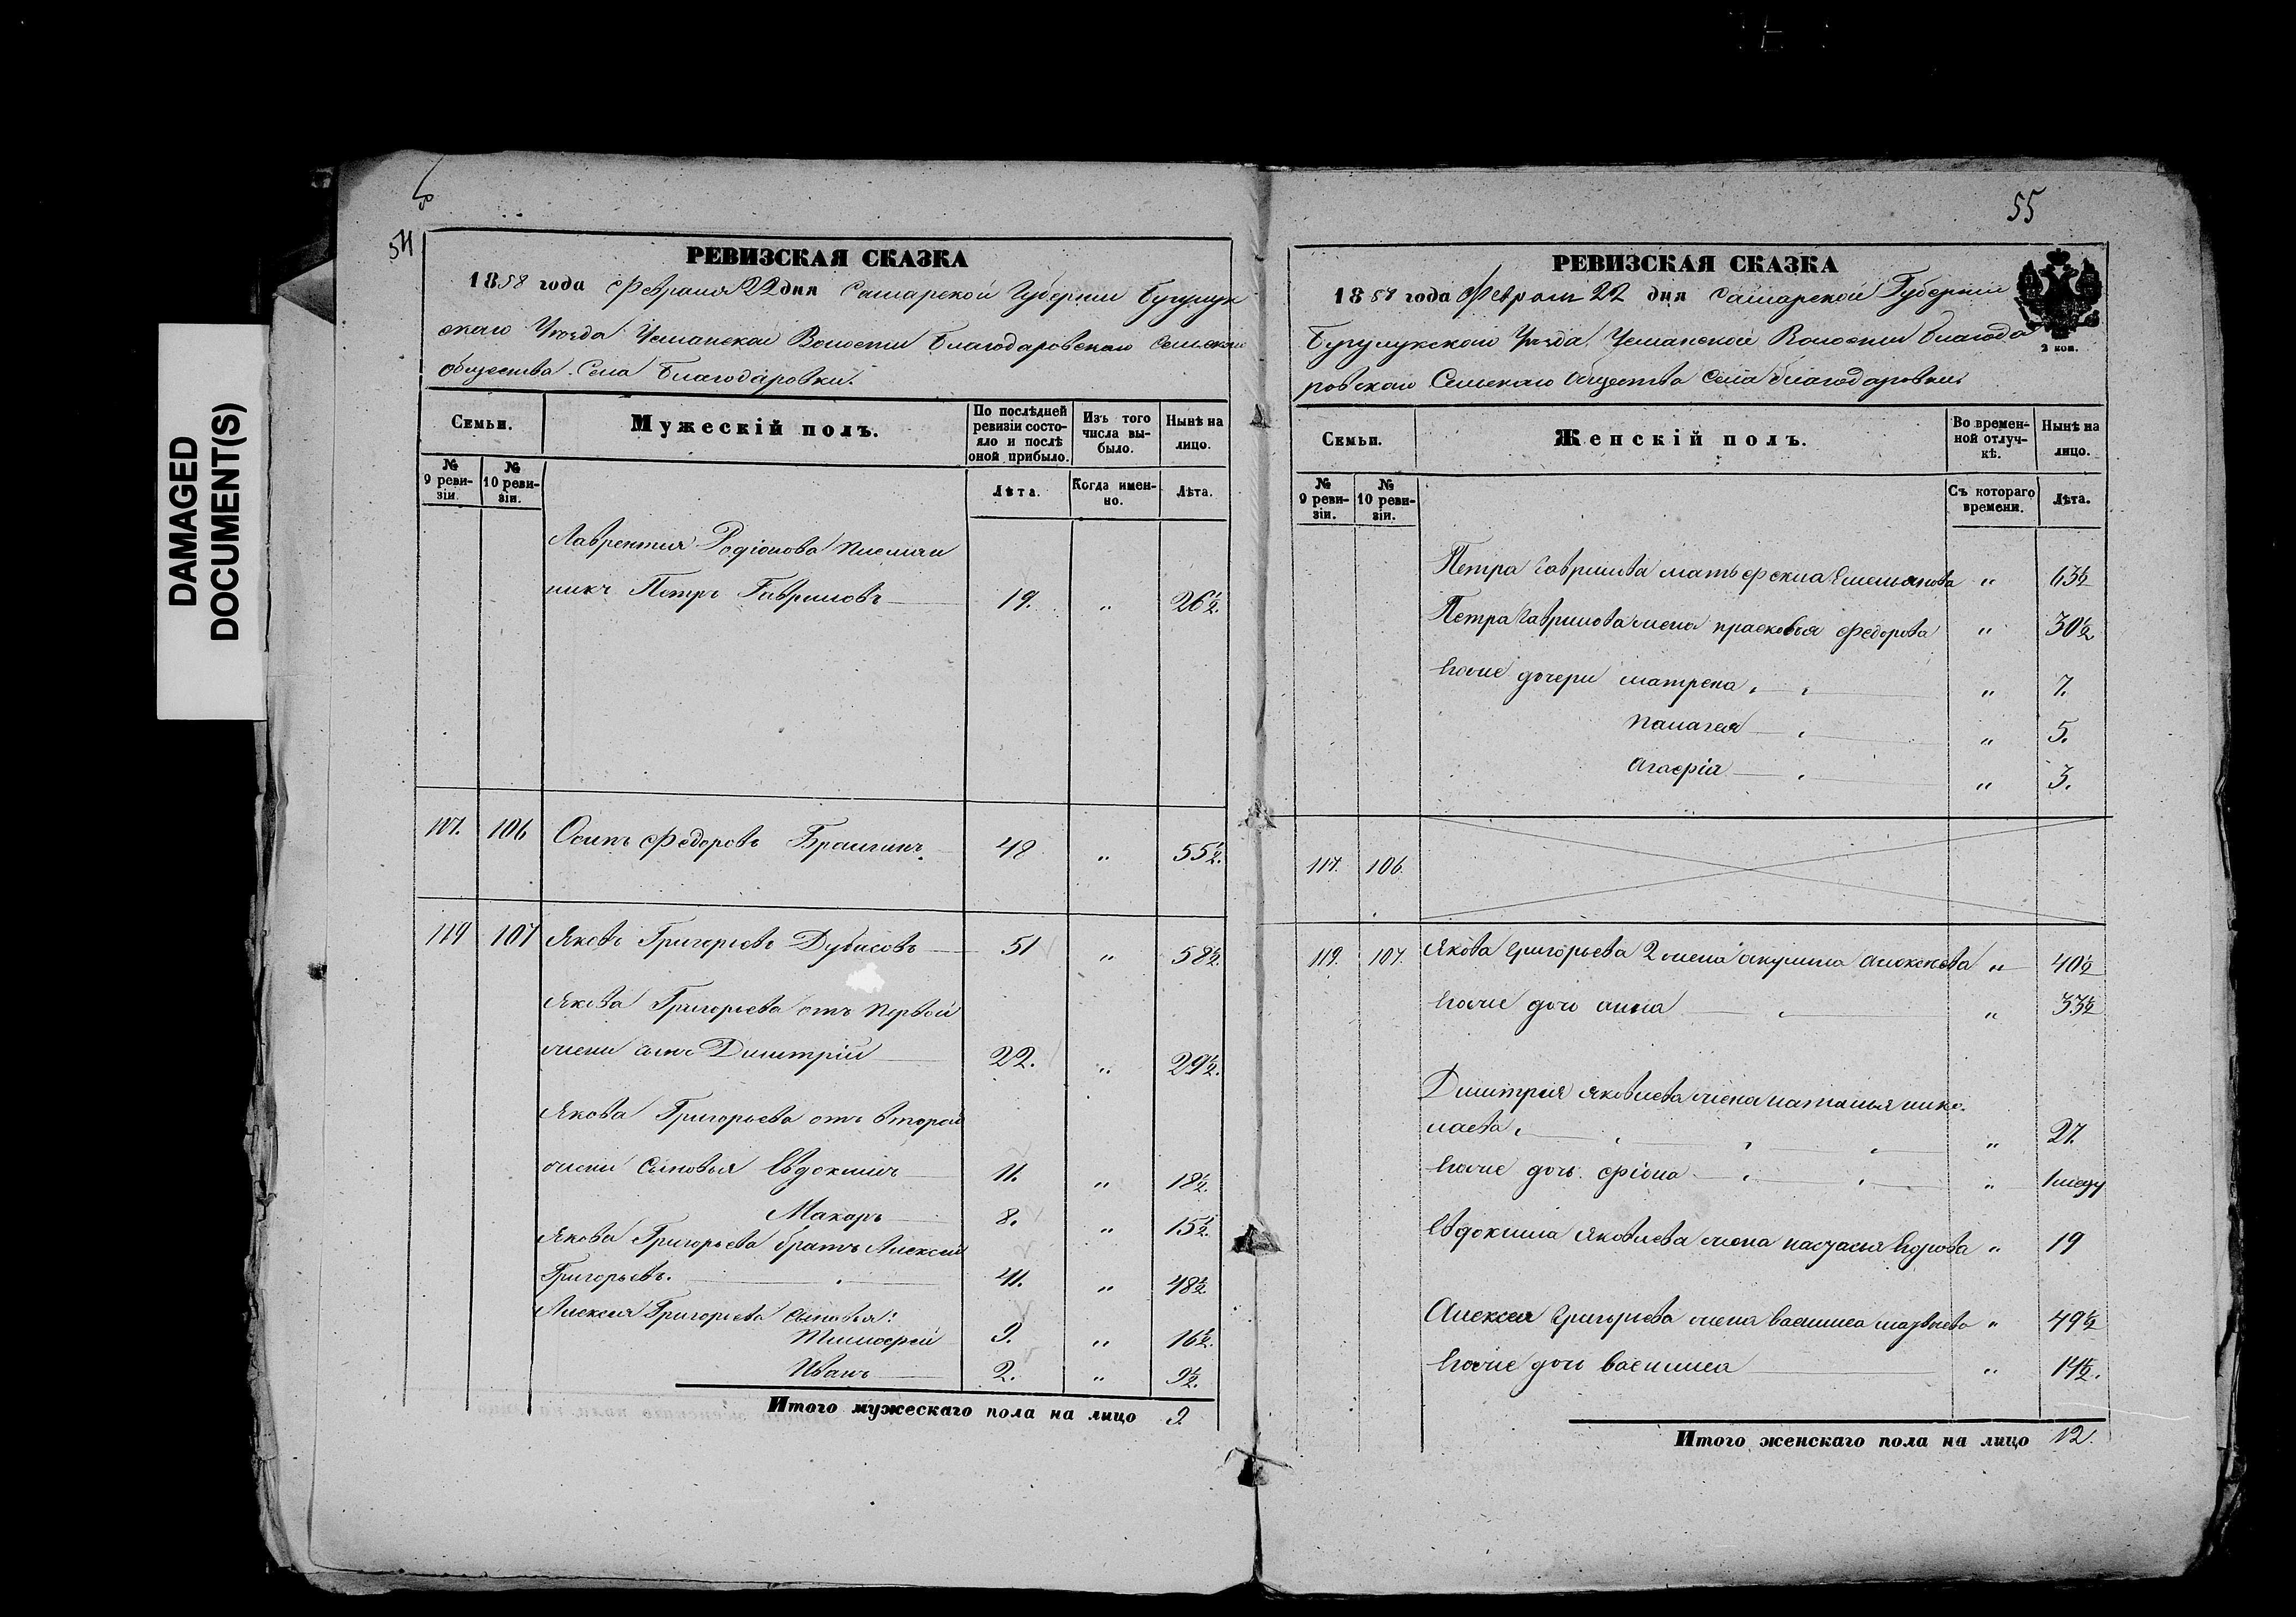 DAMAGED
DOCUMENT(S)
54
РЕВИЗСКАЯ СКАЗКА
1858 года Февраля 22 дня Самарской Губерніи Бугурук
скаго Уѣзда Усманской Волости Благодаровскаго Сельскаго
общества Села Благодаровки.
Семьи.
Мужескій полъ.
По послѣдней ревизіи состояло и послѣ оной прибыло.
Изъ того числа выбыло.
Нынѣ на лицо.
№ 9 ревизіи.
№ 10 ревизіи.
Лѣта.
Когда именно.
Лѣта.
Лаврентия Родіонова племян
никъ Петръ Гавриловъ 19. " 26½.
117. 106 Осипъ Федоровъ 48 " 55½.
119 107 Яковъ Григорьевъ Дубасовъ 51 " 58½.
Якова Григорьева отъ первой
жены сынъ Димитрій 22. " 29½.
Якова Григорьева отъ второй
жены сыновья Евдокимъ 11. " 18½.
Макаръ 8. " 15½.
Якова Григорьева братъ Алексей
Григорьевъ. 41. " 48½
Алексея Григорьева сыновья:
Тимофей 9. " 16½.
Иванъ 2. " 9½.
Итого мужескаго пола на лицо 9.
55
РЕВИЗСКАЯ СКАЗКА
1858 года Феврал 22 дня Самарской Губерніи
Бугурукскаго Уѣзда Усманской Волости Благода
ровскаго Сельскаго общества Села благодаровки
2 коп.
Семьи.
Женскій полъ.
Во временной отлучкѣ.
Нынѣ на лицо.
№ 9 ревизіи.
№ 10 ревизіи.
Съ котораго времени.
Лѣта.
Петра Гаврилова мать фекла Емельянова " 63½
Петра Гаврилова жена прасковья Федорова " 30½
Ихъ дочери матрена " 7.
палагея " 5.
3.
117. 106.
119. 107. Якова Григорьева 2 жена акулина " 40½
дочь анна " 33½
Димитрия Яковлева жена наталья нико
лаева " 27.
дочь "
Евдокима Яковлева жена настасья Егорова " 19
Алексея Григорьева жена василиса матвѣева " 49½
дочь василиса " 14½.
Итого женскаго пола на лицо 12.